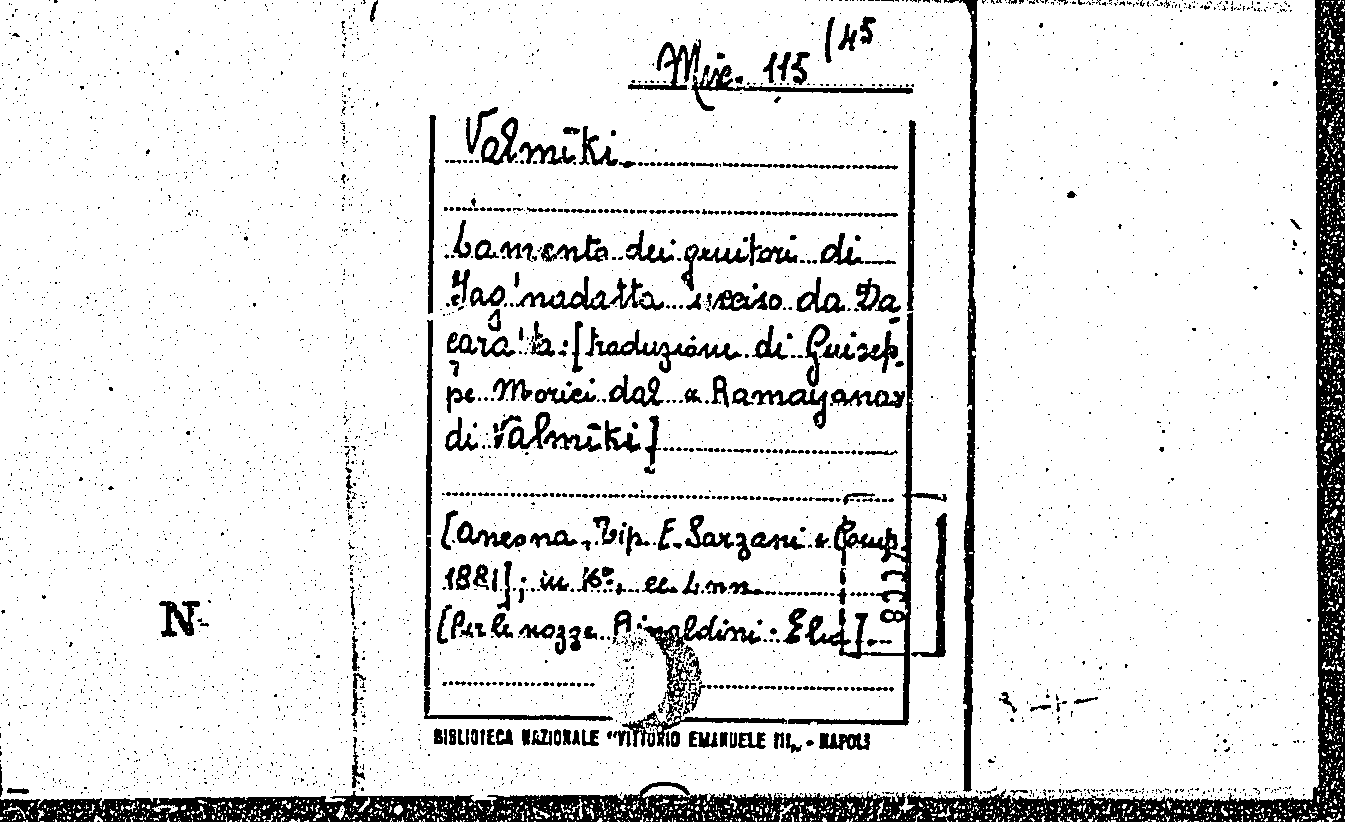 Misc. 115 (45
Valmīki.
Lamento dei genitori di
Jag'nadatta ucciso da Da
çara'ta: [traduzione di Guisep-
pe Morici dal « Ramayana»
di Valmīki]
[Ancona, Tip. E. Sarzani e Comp.
1881]; in 16°, cc. 4 nn.
[Per le nozze Rinaldini - Elia].
N-
BIBLIOTECA NAZIONALE "VITTORIO EMANUELE III„ - NAPOLI